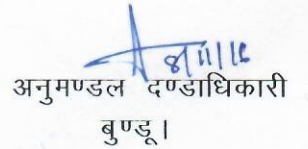 8/11/16
अनुमण्डल दण्डाधिकारी
बुण्डू।